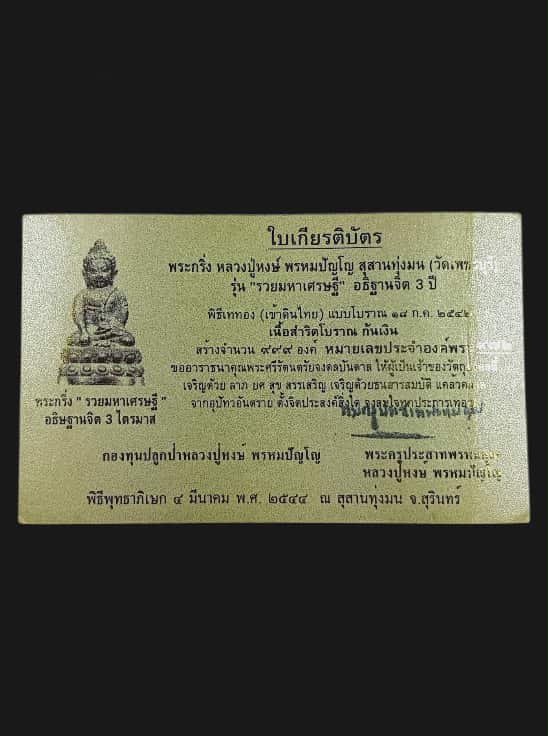 ใบเกียรติบัตร
พระกริ่ง หลวงปู่หงษ์ พรหมปัญโญ สุสานทุ่งมน
รุ่น "รวยมหาเศรษฐี" อธิฐานจิต 3 ปี
พิธีเททอง (เข้าดินไทย) แบบโบราณ ๑๘ ก.ค. ๒๕๔๒
เนื้อสำริดโบราณ ก้นเงิน
สร้างจำนวน ๙๙๙ องค์ หมายเลขประจำองค์พระ
ขออาราธนาคุณพระศรีรัตนตรัยจงดลบันดาล ให้ผู้เป็นเจ้าของวัตถุ
เจริญด้วย ลาภ ยศ สุข สรรเสริญ เจริญด้วยธนสารสมบัติ
จากอุปัทวอันตราย ตั้งจิตประสงค์สิ่งใด
พระกริ่ง " รวยมหาเศรษฐี "
อธิษฐานจิต 3 ไตรมาส
กองทุนปลูกป่าหลวงปู่หงษ์ พรหมปัญโญ
พระครูประสาทพรหมคุณ
หลวงปู่หงษ์ พรหมปัญโญ
พิธีพุทธาภิเษก ๔ มีนาคม พ.ศ. ๒๕๔๔ ณ สุสานทุ่งมน จ.สุรินทร์